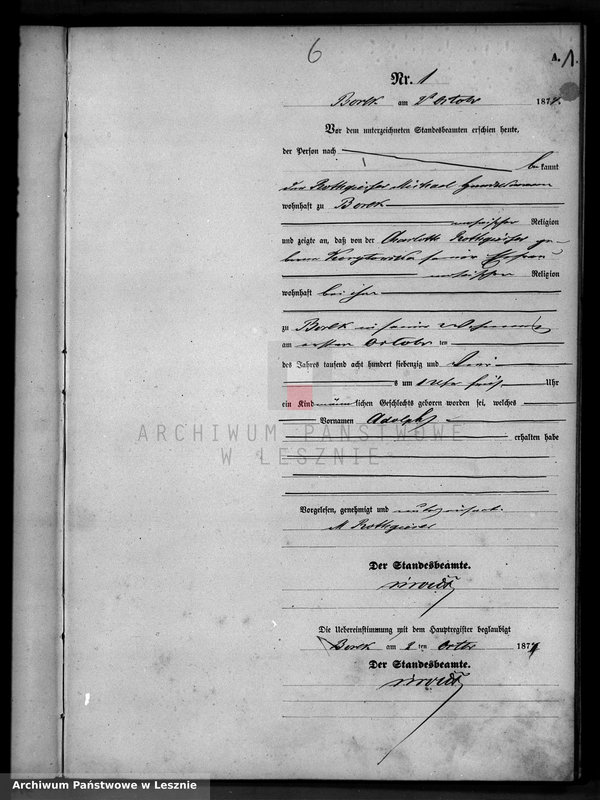 6
A. 1.
Nr. 1
Borek am 2 October 1874.
Vor dem unterzeichneten Standesbeamten erschien heute,
der Person nach
bekannt
Rothgießer Michael
wohnhaft zu Borek
mosaischer Religion
und zeigte an, daß von der Charlotte Rothgießer ge-
borene seiner Ehefrau
mosaischer Religion
wohnhaft bei ihm
zu Borek in seiner Wohnung
am ersten October ten
des Jahres tausend acht hundert siebenzig und vier
s um 1 Uhr früh Uhr
ein Kind männlichen Geschlechts geboren worden sei, welches
Vornamen Adolph
erhalten habe
ARCHIWUM PAŃSTWOWE
W LESZNIE
Vorgelesen, genehmigt und unterzeichnet.
M Rothgiesser
Der Standesbeamte.
Die Uebereinstimmung mit dem Hauptregister beglaubigt
Borek am 2 ten October 1874
Der Standesbeamte.
Archiwum Państwowe w Lesznie